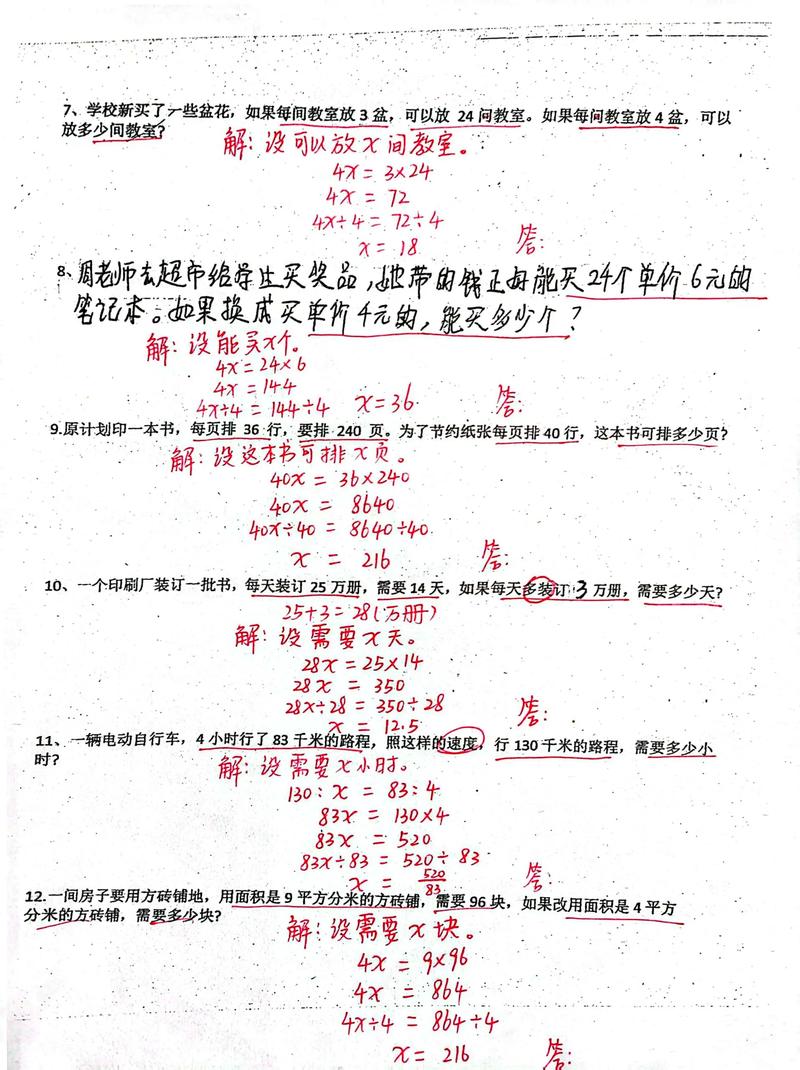 7、学校新买了一些盆花，如果每间教室放3盆，可以放 24 问教室。如果每问教室放4盆，可以
放多少间教室？
解：设可以放x间教室。
4x = 3×24
4x = 72
4x÷4 = 72÷4
x = 18
答：
8、周老师去超市给学生买奖品，她带的钱正好能买24个单价6元的
笔记本。如果换成买单价4元的，能买多少个？
解：设能买x个。
4x = 24×6
4x = 144
4x÷4 = 144÷4 x=36
答：
9.原计划印一本书，每页排 36 行，要排 240 页。为了节约纸张每页排40行，这本书可排多少页？
解：设这本书可排x页。
40x = 36×240
40x = 8640
40x÷40 = 8640÷40
x = 216
答：
10、一个印刷厂装订一批书，每天装订25万册，需要14天，如果每天多装订3万册，需要多少天？
25+3=28(万册)
解：设需要x天。
28x = 25×14
28x = 350
28x÷28 = 350÷28
x = 12.5
答：
11、一辆电动自行车，4小时行了83千米的路程，照这样的速度，行130千米的路程，需要多少小
时？
解：设需要x小时。
130：x = 83：4
83x = 130×4
83x = 520
83x÷83 = 520÷83
x = 520/83
答：
12.一间房子要用方砖铺地，用面积是9平方分米的方砖铺，需要96块，如果改用面积是4平方
分米的方砖铺，需要多少块？
解：设需要x块。
4x = 9×96
4x = 864
4x÷4 = 864÷4
x = 216
答：